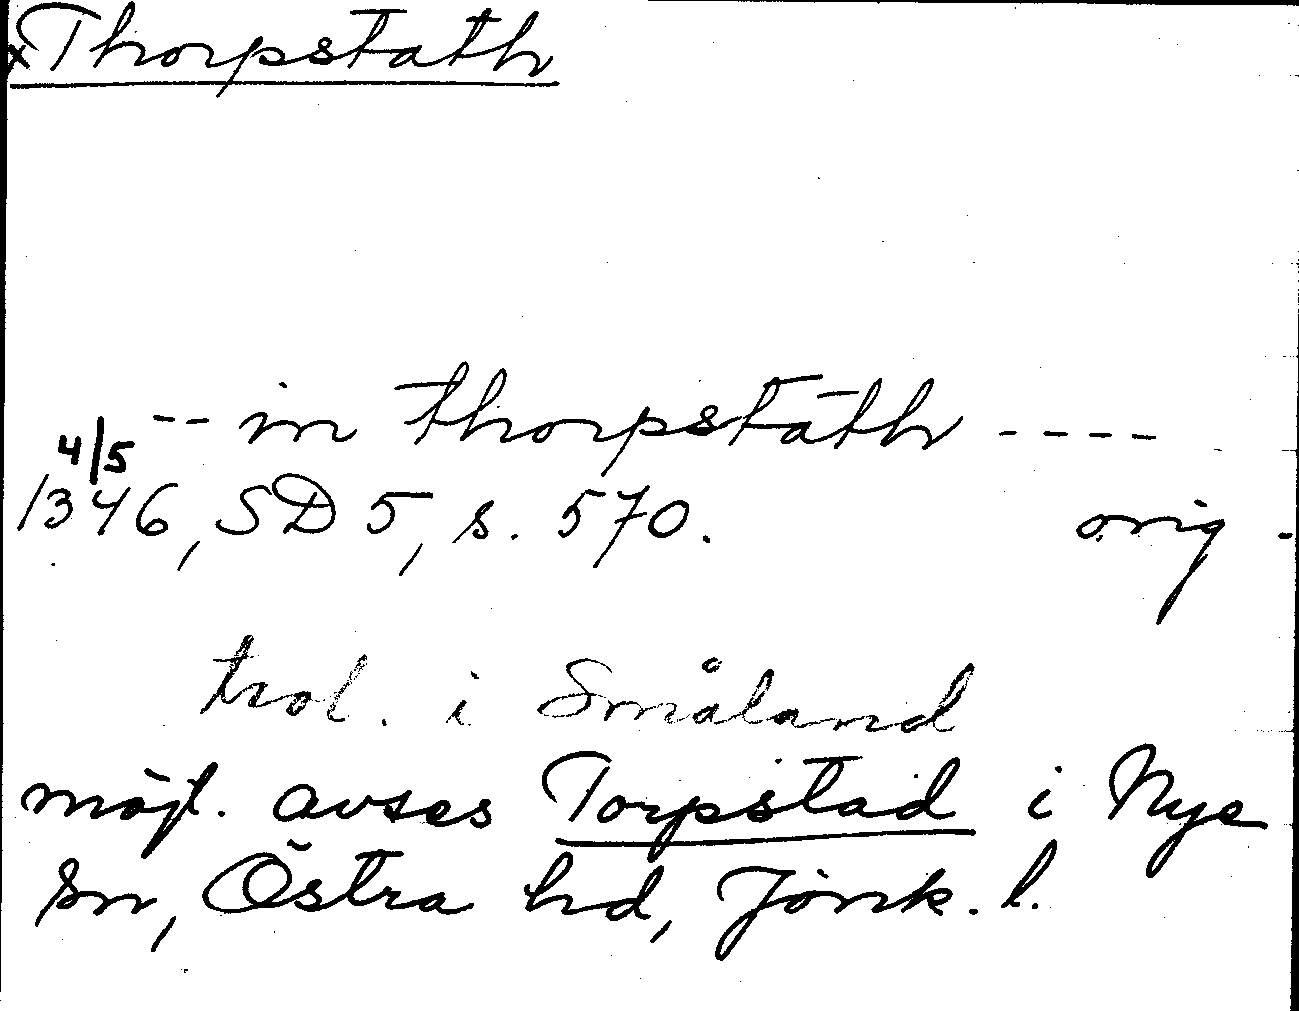 x Thorpstath
-- in thorpstath ----
4/5
1346, SD 5, s. 570. orig.
trol. i Småland
möjl. avses Torpstad i Nye
sn, Östra hd, Jönk. l.